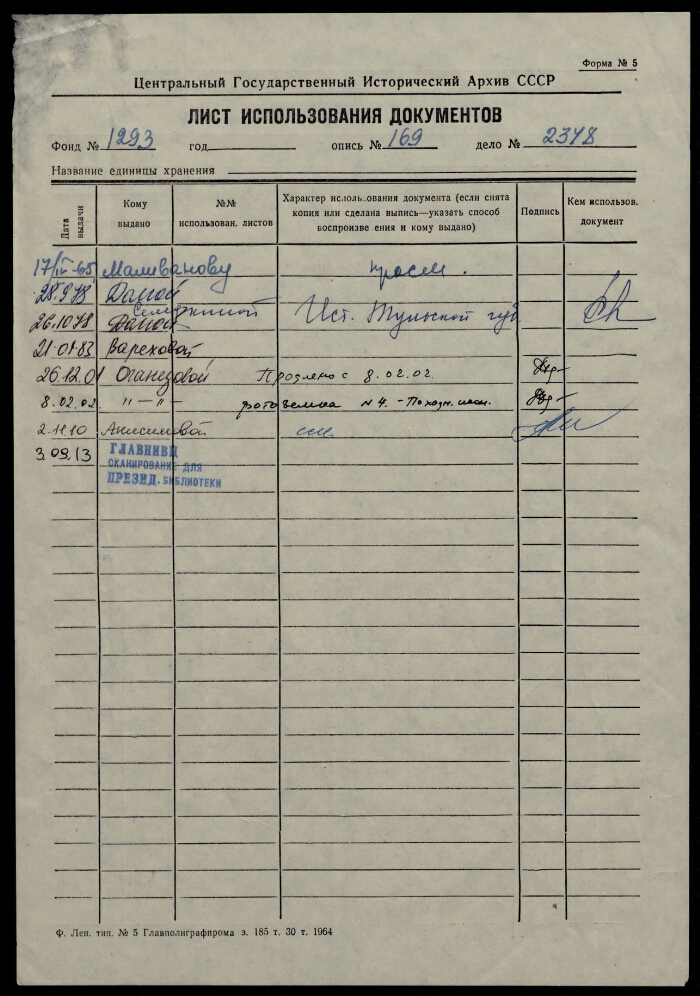 Форма № 5
Центральный Государственный Исторический Архив СССР
ЛИСТ ИСПОЛЬЗОВАНИЯ ДОКУМЕНТОВ
Фонд № 1293 год опись № 169 дело № 2348
Название единицы хранения
Дата выдачи
Кому выдано
№№ использован. листов
Характер использования документа (если снята
копия или сделана выпись—указать способ
воспроизведения и кому выдано)
Подпись
Кем использов. документ
17/IV-65 Маливанову просм.
28.9.78
26.10.78 Ист. Тульской губ
21.01.83 Вареховой
26.12.01 Оганезовой Продлено с 8.02.02.
8.02.02 "—"— фотосъемка №4.
Анисимовой см.
3.09.13 ГЛАВНИВЦ
СКАНИРОВАНИЕ ДЛЯ
ПРЕЗИД. БИБЛИОТЕКИ
Ф. Лен. тип. № 5 Главполиграфпрома з. 185 т. 30 т. 1964